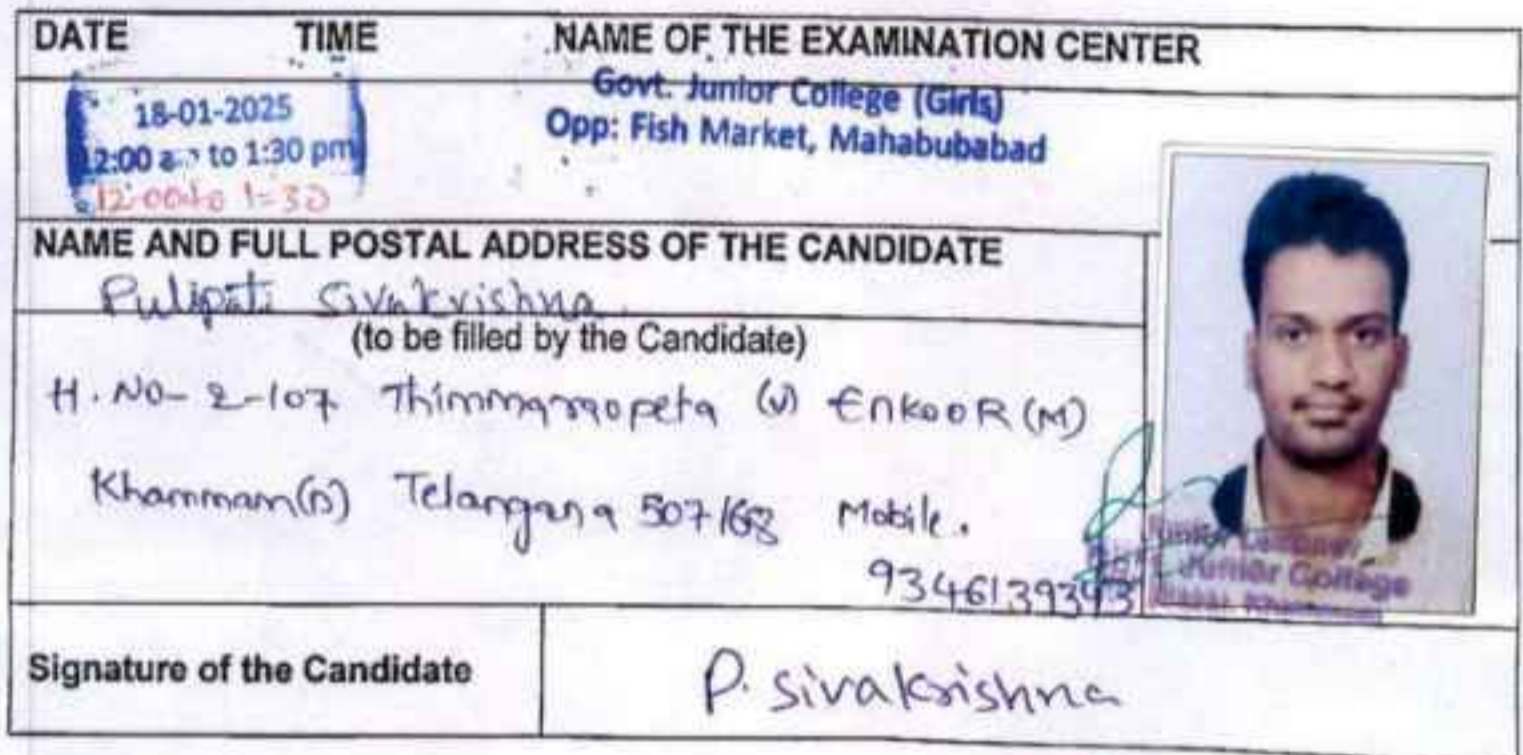 DATE TIME NAME OF THE EXAMINATION CENTER
Govt. Junior College (Girls)
18-01-2025
Opp: Fish Market, Mahabubabad
12:00 to 1:30 pm
12:00 to 1-30
NAME AND FULL POSTAL ADDRESS OF THE CANDIDATE
Pulipati Sivakrishna
(to be filled by the Candidate)
H.NO- 2-107 Thimmaraopeta (V) ENKOOR (M)
Khammam(D) Telangana 507168 Mobile.
9346139393
Junior College
Signature of the Candidate P. Sivakrishna